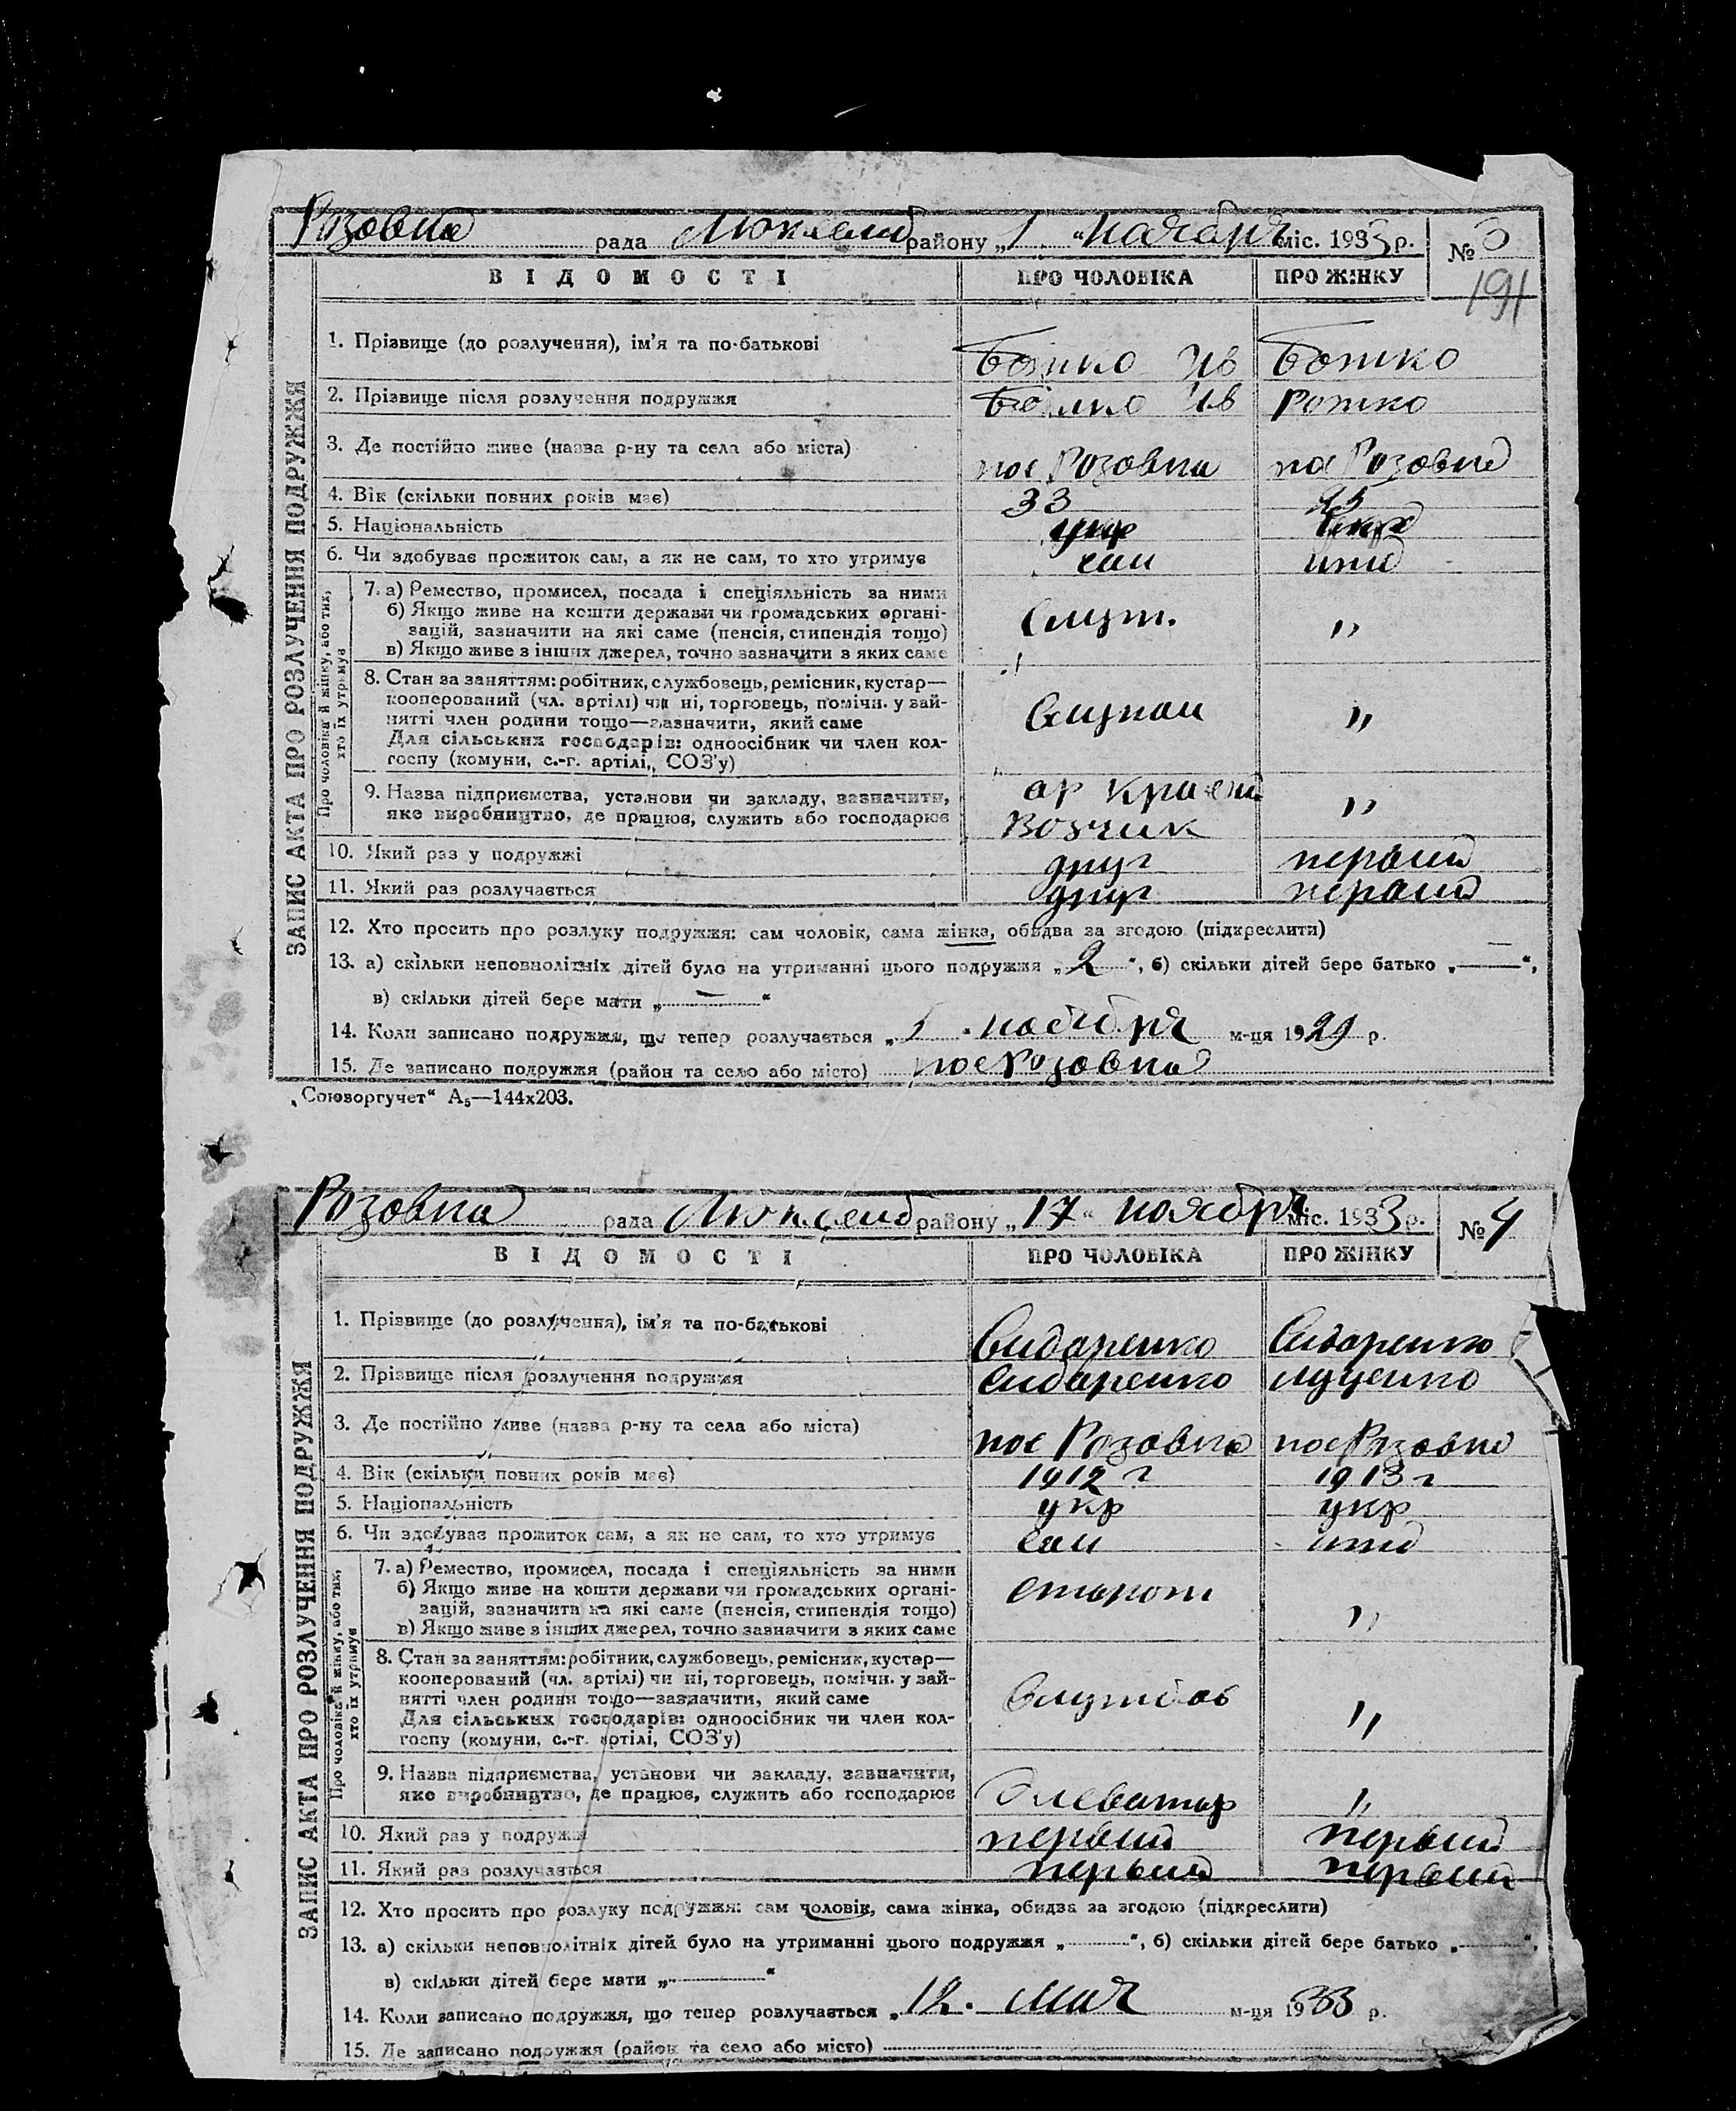 Розовка рада Люксемб району „1. “ ноября міс. 1933 р. № 3
191
ВІДОМОСТІ ПРО ЧОЛОВІКА ПРО ЖІНКУ
ЗАПИС АКТА ПРО РОЗЛУЧЕННЯ ПОДРУЖЖЯ
1. Прізвище (до розлучення), ім'я та по-батькові Божко Ив Божко
2. Прізвище після розлучення подружжя Божко Ив Рожко
3. Де постійно живе (назва р-ну та села або міста) пос Розовка пос Розовка
4. Вік (скільки повних років має) 33 25
5. Національність укр укр
6. Чи здобуває прожиток сам, а як не сам, то хто утримує сам ижд
Про чоловіка й жінку, або тих,
хто їх утримує
7. а) Ремество, промисел, посада і спеціяльність за ними
б) Якщо живе на кошти держави чи громадських органі-
зацій, зазначити на які саме (пенсія, стипендія тощо) Служ. "
в) Якщо живе з інших джерел, точно зазначити з яких саме
8. Стан за заняттям: робітник, службовець, ремісник, кустар—
кооперований (чл. артілі) чи ні, торговець, помічн. у зай-
нятті член родини тощо—зазначити, який саме "
Для сільських господарів: одноосібник чи член кол-
госпу (комуни, с.-г. артілі, СОЗ'у)
9. Назва підприємства, установи чи закладу, зазначити, ар
яке виробництво, де працює, служить або господарює Возчик "
10. Який раз у подружжі друг первый
11. Який раз розлучається друг первый
12. Хто просить про розлуку подружжя: сам чоловік, сама жінка, обидва за згодою (підкреслити)
13. а) скільки неповнолітніх дітей було на утриманні цього подружжя „2“, б) скільки дітей бере батько „—“,
в) скільки дітей бере мати „—“
14. Коли записано подружжя, що тепер розлучається „5. ноября м-ця 1929 р.
15. Де записано подружжя (район та село або місто) пос Розовка
„Союзоргучет“ А5—144х203.
Розовка рада Люксемб району „17“ ноября міс. 1933 р. № 4
ВІДОМОСТІ ПРО ЧОЛОВІКА ПРО ЖІНКУ
ЗАПИС АКТА ПРО РОЗЛУЧЕННЯ ПОДРУЖЖЯ
1. Прізвище (до розлучення), ім'я та по-батькові Сидаренко Сидаренко
2. Прізвище після розлучення подружжя Сидаренко Луценко
3. Де постійно живе (назва р-ну та села або міста) пос Розовка пос Розовка
4. Вік (скільки повних років має) 1912 г 1913 г
5. Національність укр укр
6. Чи здобуває прожиток сам, а як не сам, то хто утримує сам ижд
Про чоловіка й жінку, або тих,
хто їх утримує
7. а) Ремество, промисел, посада і спеціяльність за ними
б) Якщо живе на кошти держави чи громадських органі- сторож
зацій, зазначити на які саме (пенсія, стипендія тощо) "
в) Якщо живе з інших джерел, точно зазначити з яких саме
8. Стан за заняттям: робітник, службовець, ремісник, кустар—
кооперований (чл. артілі) чи ні, торговець, помічн. у зай-
нятті член родини тощо—зазначити, який саме "
Для сільських господарів: одноосібник чи член кол-
госпу (комуни, с.-г. артілі, СОЗ'у)
9. Назва підприємства, установи чи закладу, зазначити,
яке виробництво, де працює, служить або господарює Элеватор "
10. Який раз у подружжі первый первый
11. Який раз розлучається первый первый
12. Хто просить про розлуку подружжя: сам чоловік, сама жінка, обидва за згодою (підкреслити)
13. а) скільки неповнолітніх дітей було на утриманні цього подружжя „ “, б) скільки дітей бере батько „ “,
в) скільки дітей бере мати „ “
14. Коли записано подружжя, що тепер розлучається „12. мая м-ця 1933 р.
15. Де записано подружжя (район та село або місто)